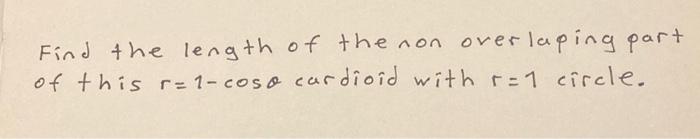 Find the length of the non overlaping part
of this r=1-cosθ cardioid with r=1 circle.